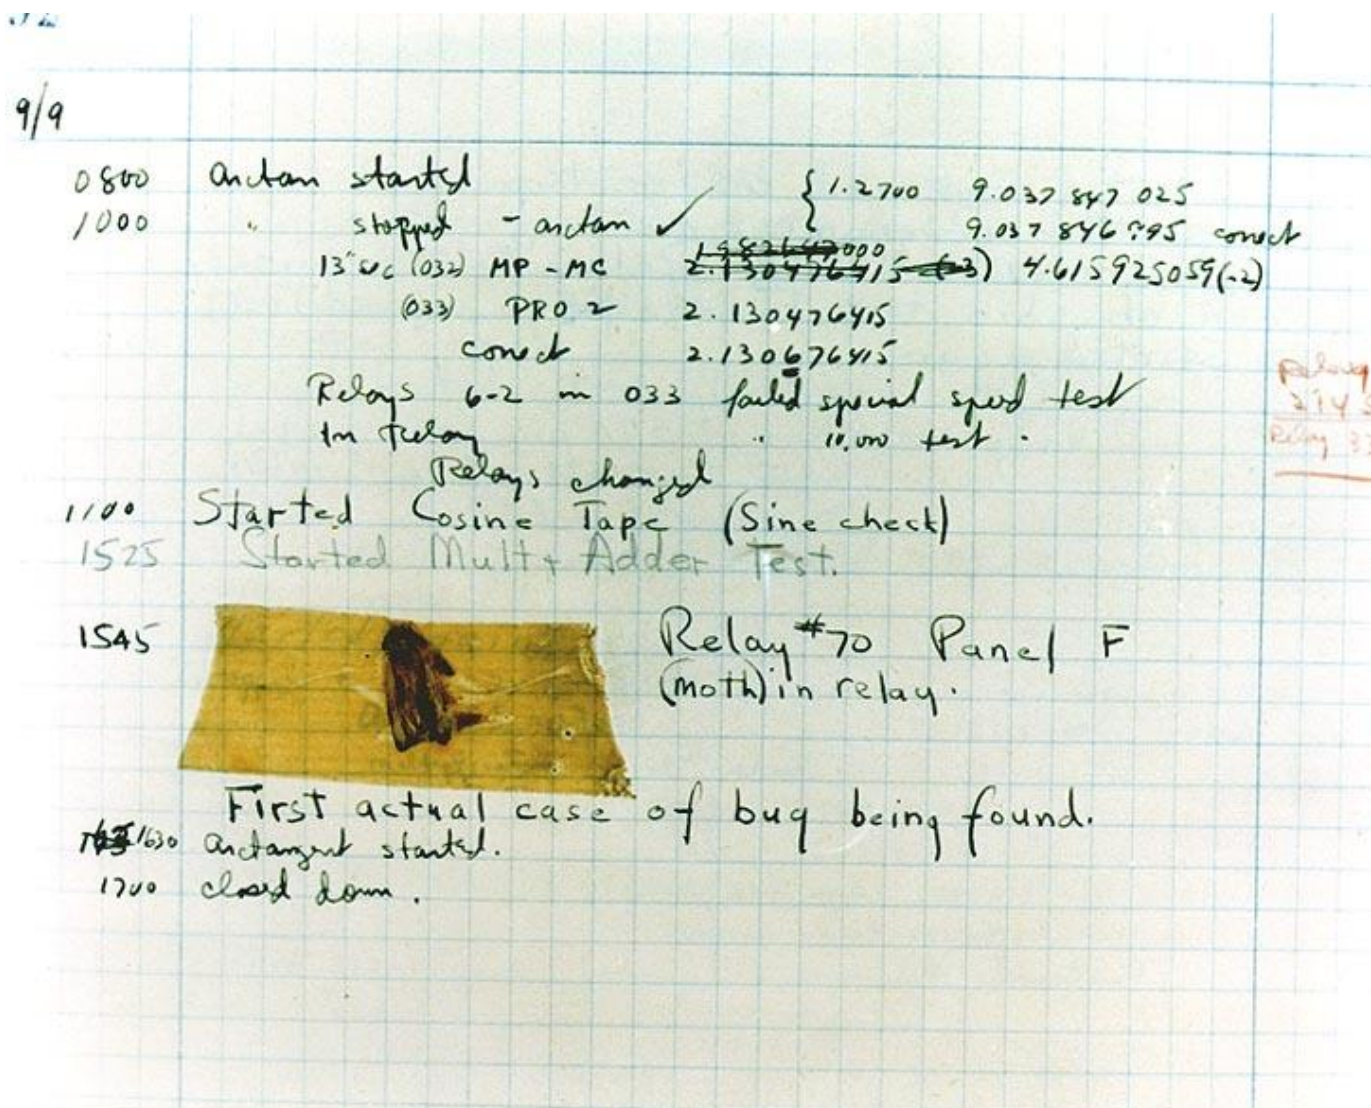 9/9
0800 arctan started { 1.2700 9.037 847 025
1000 " stopped - arctan ✓ { 9.037 846 995 correct
13"sec (032) MP - MC 2.130476415 (-3) 4.615925059(-2)
(033) PRO 2 2.130476415
correct 2.130676415
Relays 6-2 in 033 failed special speed test
In relay " 10,000 test .
Relays changed
1100 Started Cosine Tape (Sine check)
1525 Started Mult + Adder Test.
1545 Relay #70 Panel F
(moth) in relay.
First actual case of bug being found.
1630 arctangent started.
1700 closed down .
Relay
Relay